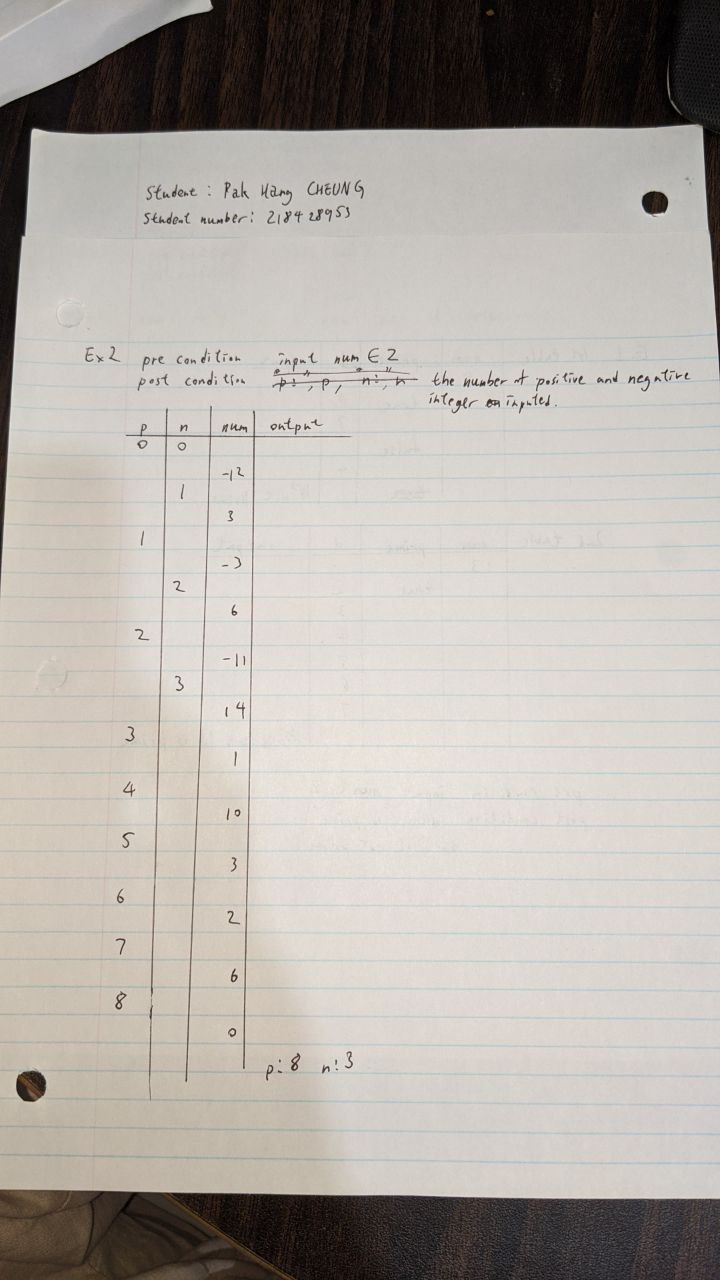 Student : Pak Hang CHEUNG
Student number: 218428953
Ex2 pre condition input num ∈ Z
post condition "p: ", p, "n: ", n the number of positive and negative
integer inputed.
p n num output
0 0
-12
1
3
1
-3
2
6
2
-11
3
14
3
1
4
10
5
3
6
2
7
6
8
0
p: 8 n: 3